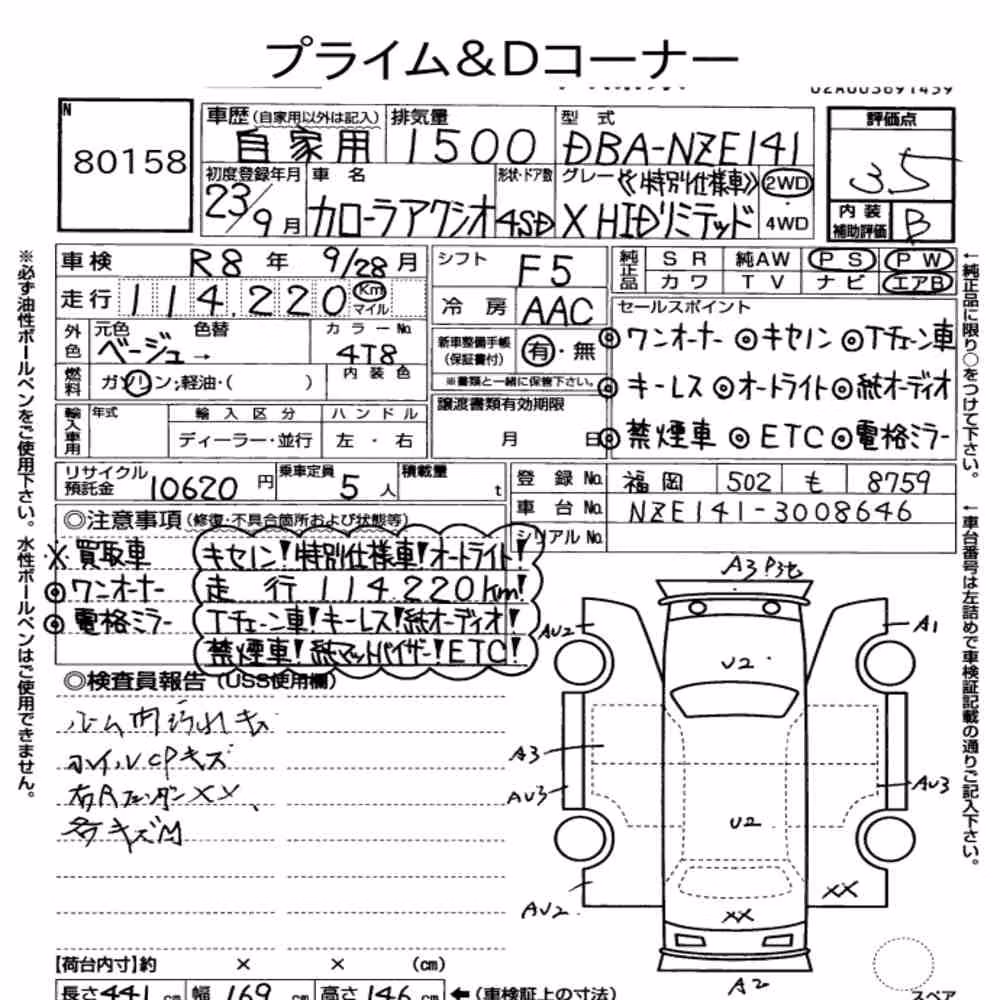 プライム＆Dコーナー
02A003691439
N
80158
車歴(自家用以外は記入) 排気量 型式
自家用 1500 DBA-NZE141
評価点
3.5
初度登録年月 車名 形状・ドア数 グレード 《特別仕様車》 2WD
23/9月 カローラアクシオ 4SD X HIDリミテッド ・4WD
内装補助評価 B
車検 R8年 9/28月 シフト F5
純正品 SR 純AW PS PW
カワ TV ナビ エアB
走行 114,220 Km マイル 冷房 AAC
セールスポイント
◎ワンオーナー ◎キセノン ◎Tチェーン車
外色 元色 色替 カラーNo.
ベージュ→ 4T8
新車整備手帳(保証書付) 有・無
※書類と一緒に保管下さい。
◎キーレス ◎オートライト ◎純オーディオ
燃料 ガソリン;軽油・( ) 内装色
譲渡書類有効期限
月 日
◎禁煙車 ◎ETC ◎電格ミラー
輸入車用 年式 輸入区分 ハンドル
ディーラー・並行 左・右
リサイクル預託金 10620円 乗車定員 5人 積載量 t
登録No. 福岡 502 も 8759
車台No. NZE141-3008646
シリアルNo.
◎注意事項(修復・不具合箇所および状態等)
※買取車 キセノン!特別仕様車!オートライト!
◎ワンオーナー 走行114.220Km!
◎電格ミラー Tチェーン車!キーレス!純オーディオ!
禁煙車!純マットバイザー!ETC!
◎検査員報告(USS使用欄)
ルーム内汚れキズ
ホイルCPキズ
右Rフェンダーxx、
多キズ凹
A3 P3セ
AU2
A1
U2
A3
AU3
AU3
U2
AU2
XX
XX
A2
【荷台内寸】約 × × (cm)
長さ441cm 幅169cm 高さ146cm ←(車検証上の寸法)
スペア
※必ず油性ボールペンをご使用下さい。水性ボールペンはご使用できません。
←純正品に限り○をつけて下さい。
←車台番号は左詰めで車検証記載の通りご記入下さい。